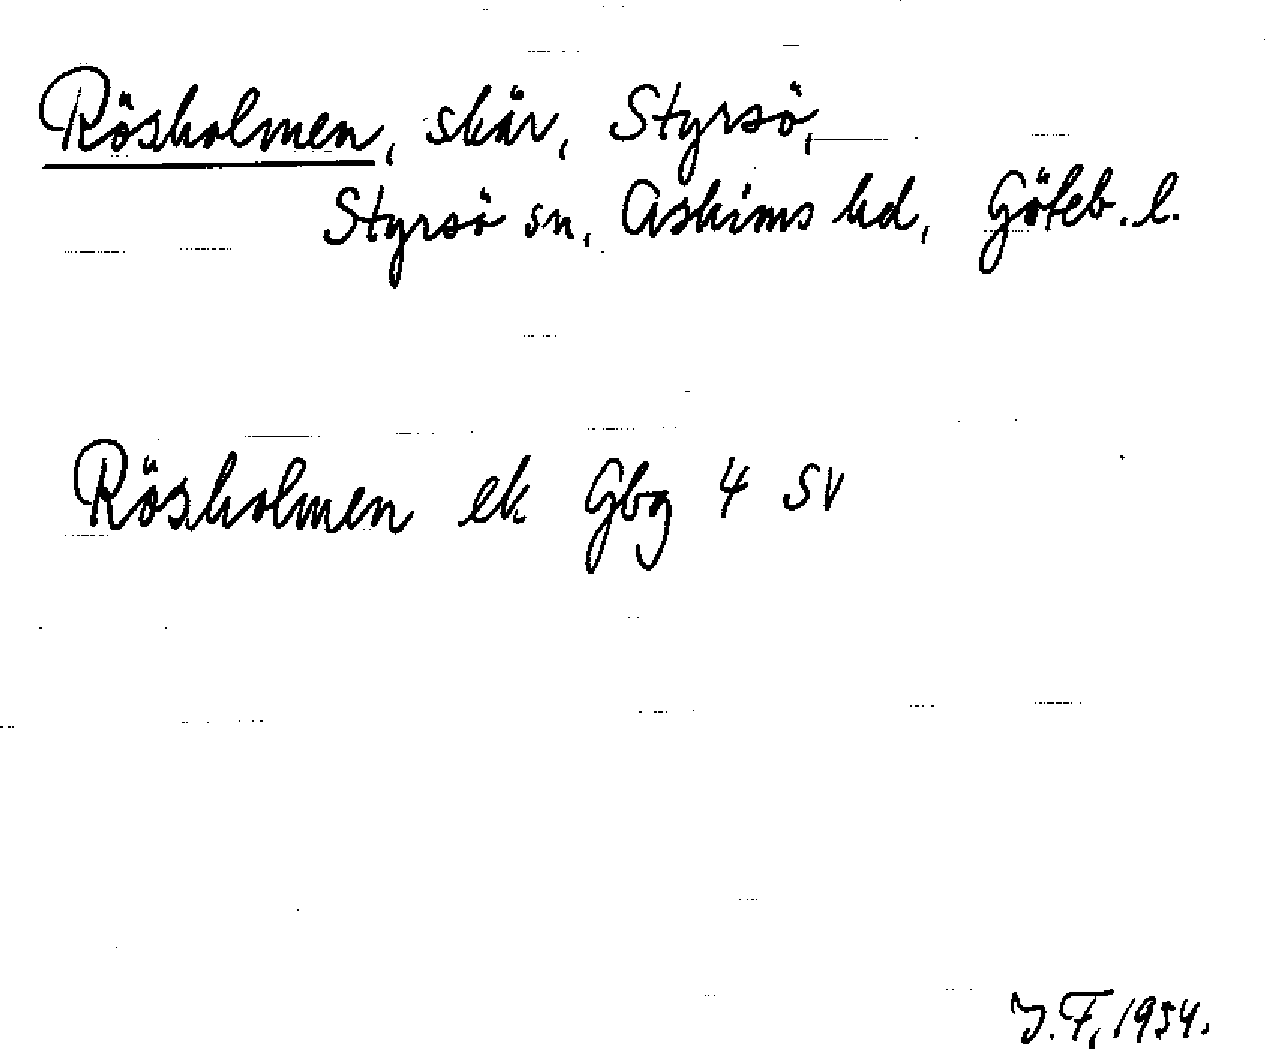 Rösholmen, skär, Styrsö,
Styrsö sn, Askims hd, Göteb. l.
Rösholmen ek Gbg 4 SV
J.F. 1954.